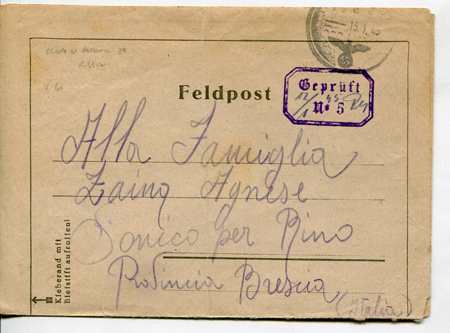 13.1.45
Feldpost
Geprüft
12/1 45
Nº 5
Alla Famiglia
Zaina Agnese
Sonico per Rino
Provincia Brescia
(Italia)
Kleberand mit
Bleistift aufrollen!